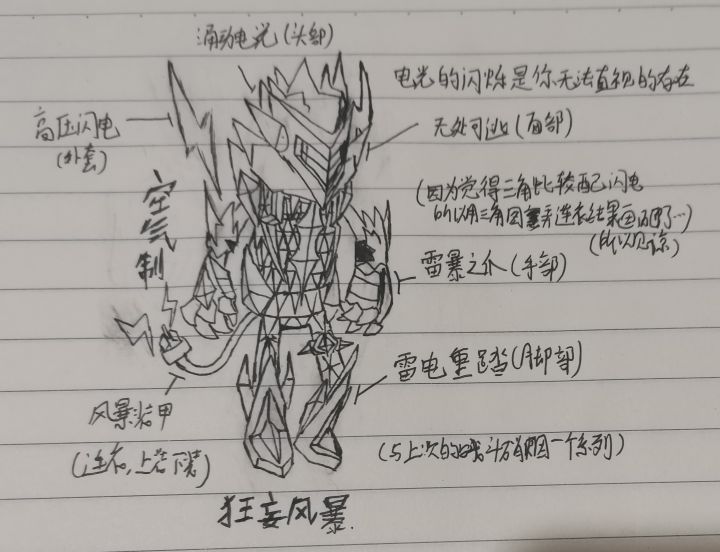 涌动电光(头部)
电光的闪烁是你无法直视的存在
高压闪电
(外套)
无处可逃(面部)
空气制
(因为觉得三角比较配闪电
所以用三角图案弄连衣结果画
(所以见谅)
雷暴之爪(手部)
雷电重踏(脚部)
风暴装甲
(连衣,上装下装)
(与上次的 同一个系列)
狂妄风暴